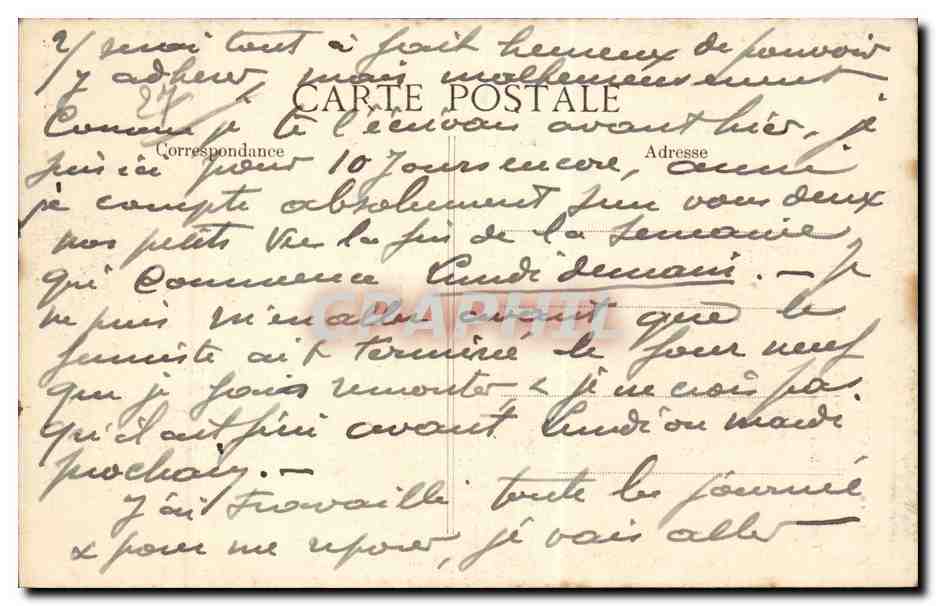 2/ moi tout à fait heureux de pouvoir
y adhérer mais malheureusement
27
CARTE POSTALE
Comme je te l'écrivais avant hier, je
Correspondance
Adresse
suis ici pour 10 jours encore, aussi
je compte absolument sur vous deux
nos petits vers la fin de la semaine
qui commence lundi demain. — Je
GRAPHIL
ne puis m'en aller avant que le
fumiste ait terminé le four neuf
que je fais remonter & je ne crois pas
qu'il ait fini avant lundi ou mardi
prochain. —
J'ai travaillé toute la journée
& pour me reposer, je vais aller